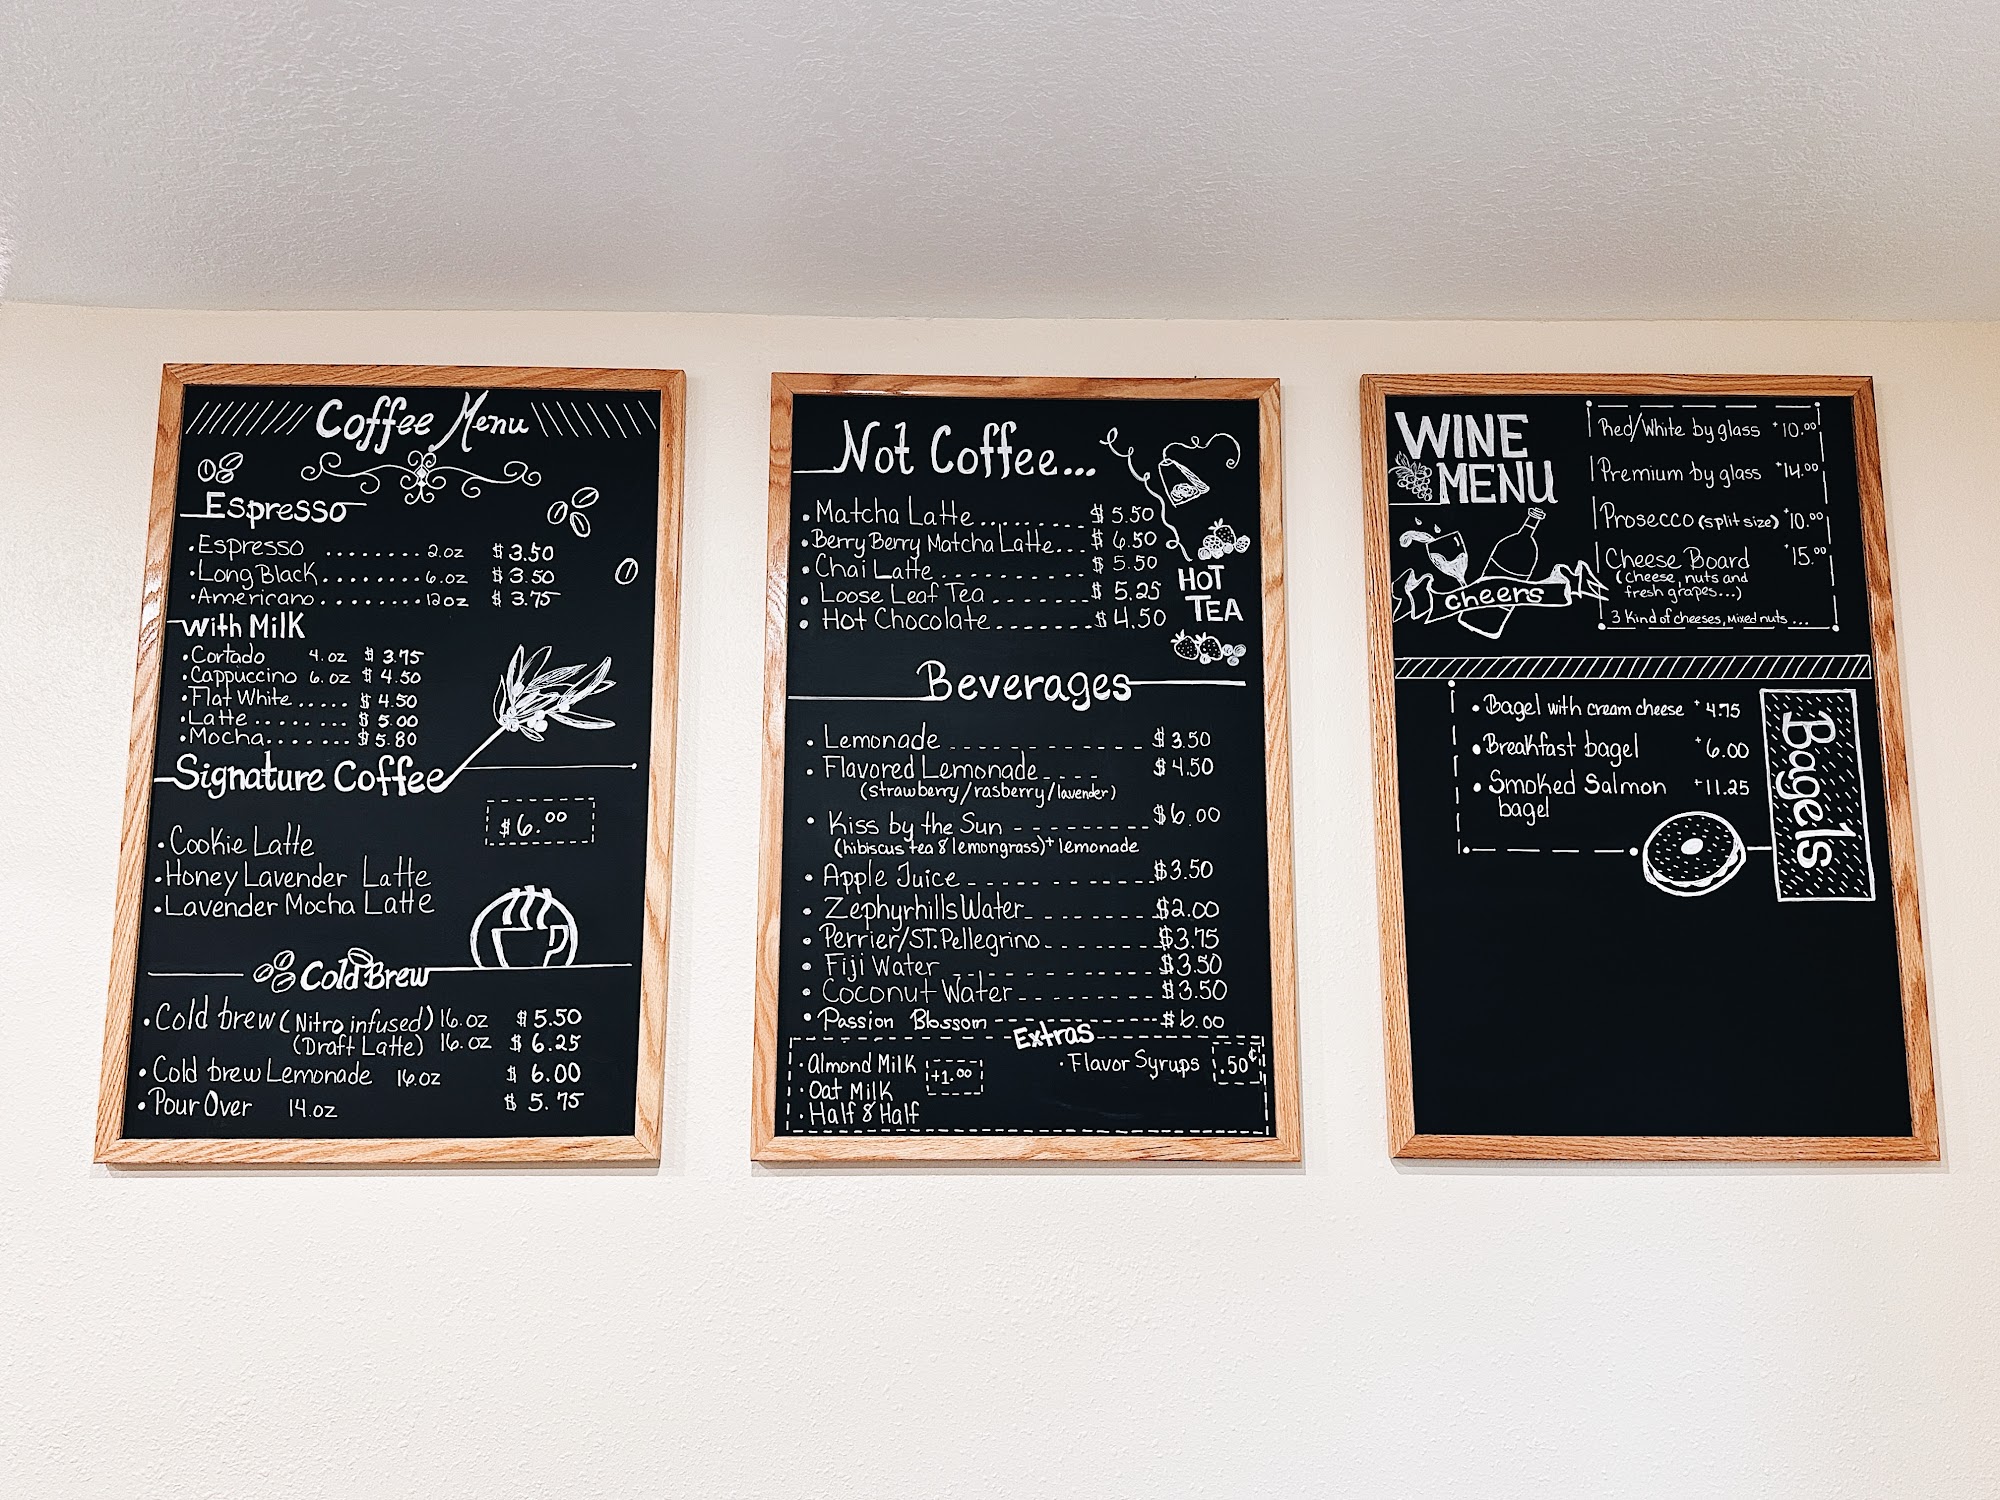 Coffee Menu
Espresso
• Espresso ........ 2.oz $3.50
• Long Black ........ 6.oz $3.50
• Americano ........ 12oz $3.75
With Milk
• Cortado 4.oz $3.75
• Cappuccino 6.oz $4.50
• Flat White ..... $4.50
• Latte ........ $5.00
• Mocha ....... $5.80
Signature Coffee
$6.00
• Cookie Latte
• Honey Lavender Latte
• Lavender Mocha Latte
Cold Brew
• Cold brew (Nitro infused) 16.oz $5.50
(Draft Latte) 16.oz $6.25
• Cold brew Lemonade 16.oz $6.00
• Pour Over 14.oz $5.75
Not Coffee...
• Matcha Latte ......... $5.50
• Berry Berry Matcha Latte... $6.50
• Chai Latte ........... $5.50
• Loose Leaf Tea ........ $5.25
• Hot Chocolate ........ $4.50
HOT
TEA
Beverages
• Lemonade ------------- $3.50
• Flavored Lemonade ---- $4.50
(strawberry/rasberry/lavender)
• Kiss by the Sun --------- $6.00
(hibiscus tea & lemongrass)+ lemonade
• Apple Juice ------------ $3.50
• Zephyrhills Water -------- $2.00
• Perrier/ST.Pellegrino ------- $3.75
• Fiji Water ------------ $3.50
• Coconut Water --------- $3.50
• Passion Blossom ------------ $6.00
Extras
• Almond Milk
• Oat Milk
• Half & Half
+1.00
• Flavor Syrups .50¢
WINE
MENU
cheers
Red/White by glass +10.00
Premium by glass +14.00
Prosecco (split size) +10.00
Cheese Board +15.00
(cheese, nuts and
fresh grapes...)
3 Kind of cheeses, Mixed nuts ...
• Bagel with cream cheese +4.75
• Breakfast bagel +6.00
• Smoked Salmon +11.25
bagel
Bagels